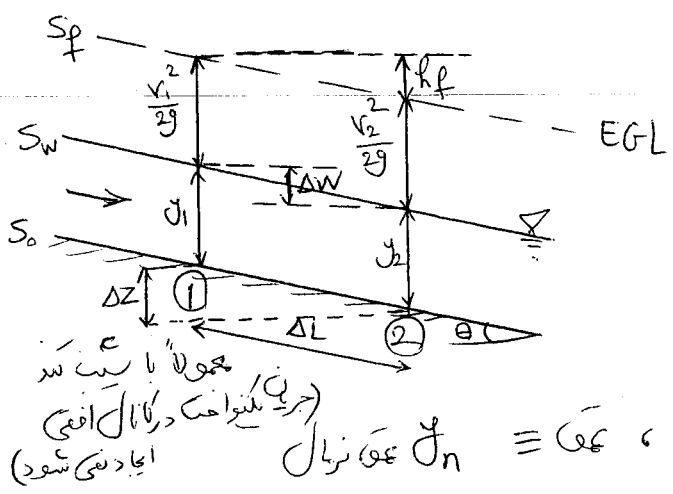 S_f
h_f
V₁²/2g
V₂²/2g
EGL
S_w
ΔW
y₁
y₂
S₀
ΔZ
①
ΔL
②
θ
معمولاً با شیب تند
(جریان یکنواخت در کانال افقی
ایجاد نمی شود)
، عمق ≡ y_n عمق نرمال